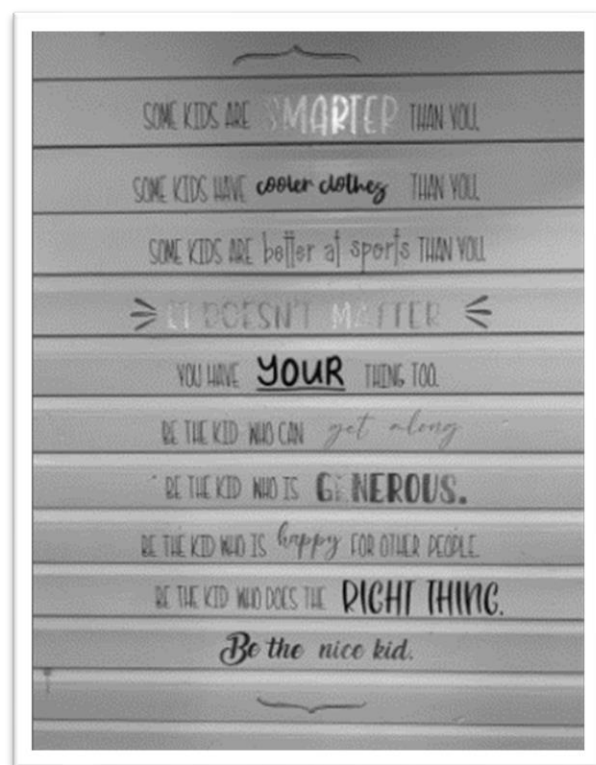 SOME KIDS ARE SMARTER THAN YOU.
SOME KIDS HAVE cooler clothes THAN YOU.
SOME KIDS ARE better at sports THAN YOU.
IT DOESN'T MATTER
YOU HAVE YOUR THING TOO.
BE THE KID WHO CAN get along
BE THE KID WHO IS GENEROUS.
BE THE KID WHO IS happy FOR OTHER PEOPLE.
BE THE KID WHO DOES THE RIGHT THING.
Be the nice kid.